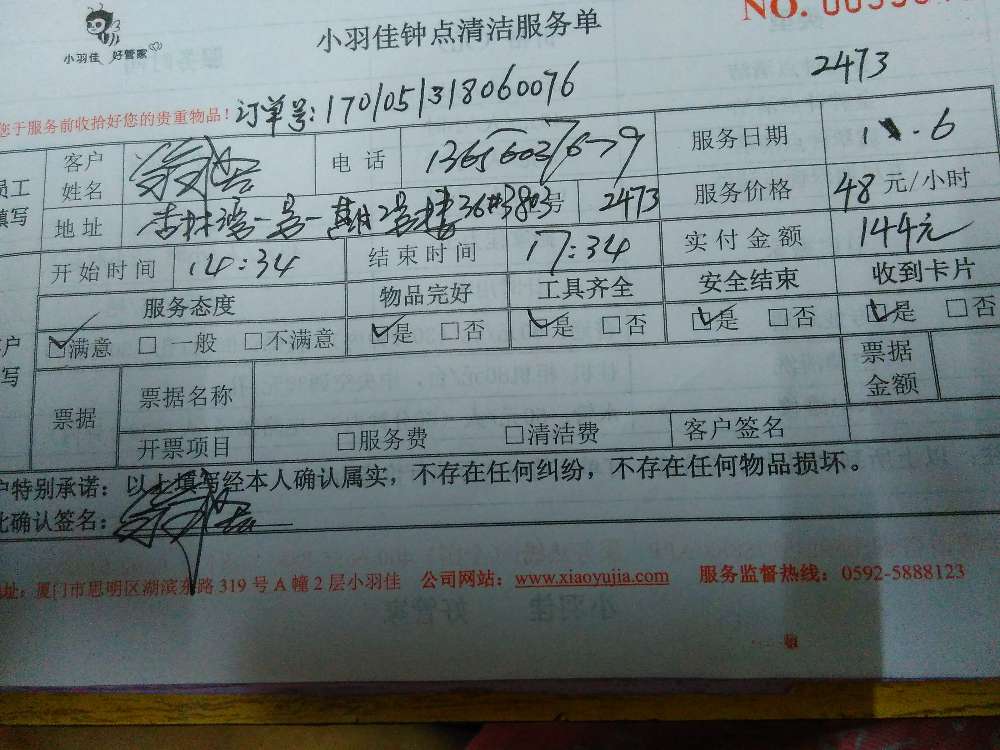 小羽佳 好管家
小羽佳钟点清洁服务单
NO.
2473
您于服务前收拾好您的贵重物品！
订单号:1701051318060076
员工
填写
客户
姓名
电话
服务日期
1 . 6
地址
杏林湾一号一期2号楼36#3803号
2473
服务价格
48 元/小时
开始时间
14:34
结束时间
17:34
实付金额
144元
服务态度
物品完好
工具齐全
安全结束
收到卡片
满意 □ 一般 □不满意
是 □否
是 □否
是 □否
是 □否
票据
票据名称
票据
金额
开票项目
□服务费 □清洁费
客户签名
户特别承诺：以上填写经本人确认属实，不存在任何纠纷，不存在任何物品损坏。
此确认签名：
地址：厦门市思明区湖滨东路 319 号 A 幢 2 层小羽佳 公司网站：www.xiaoyujia.com 服务监督热线：0592-5888123